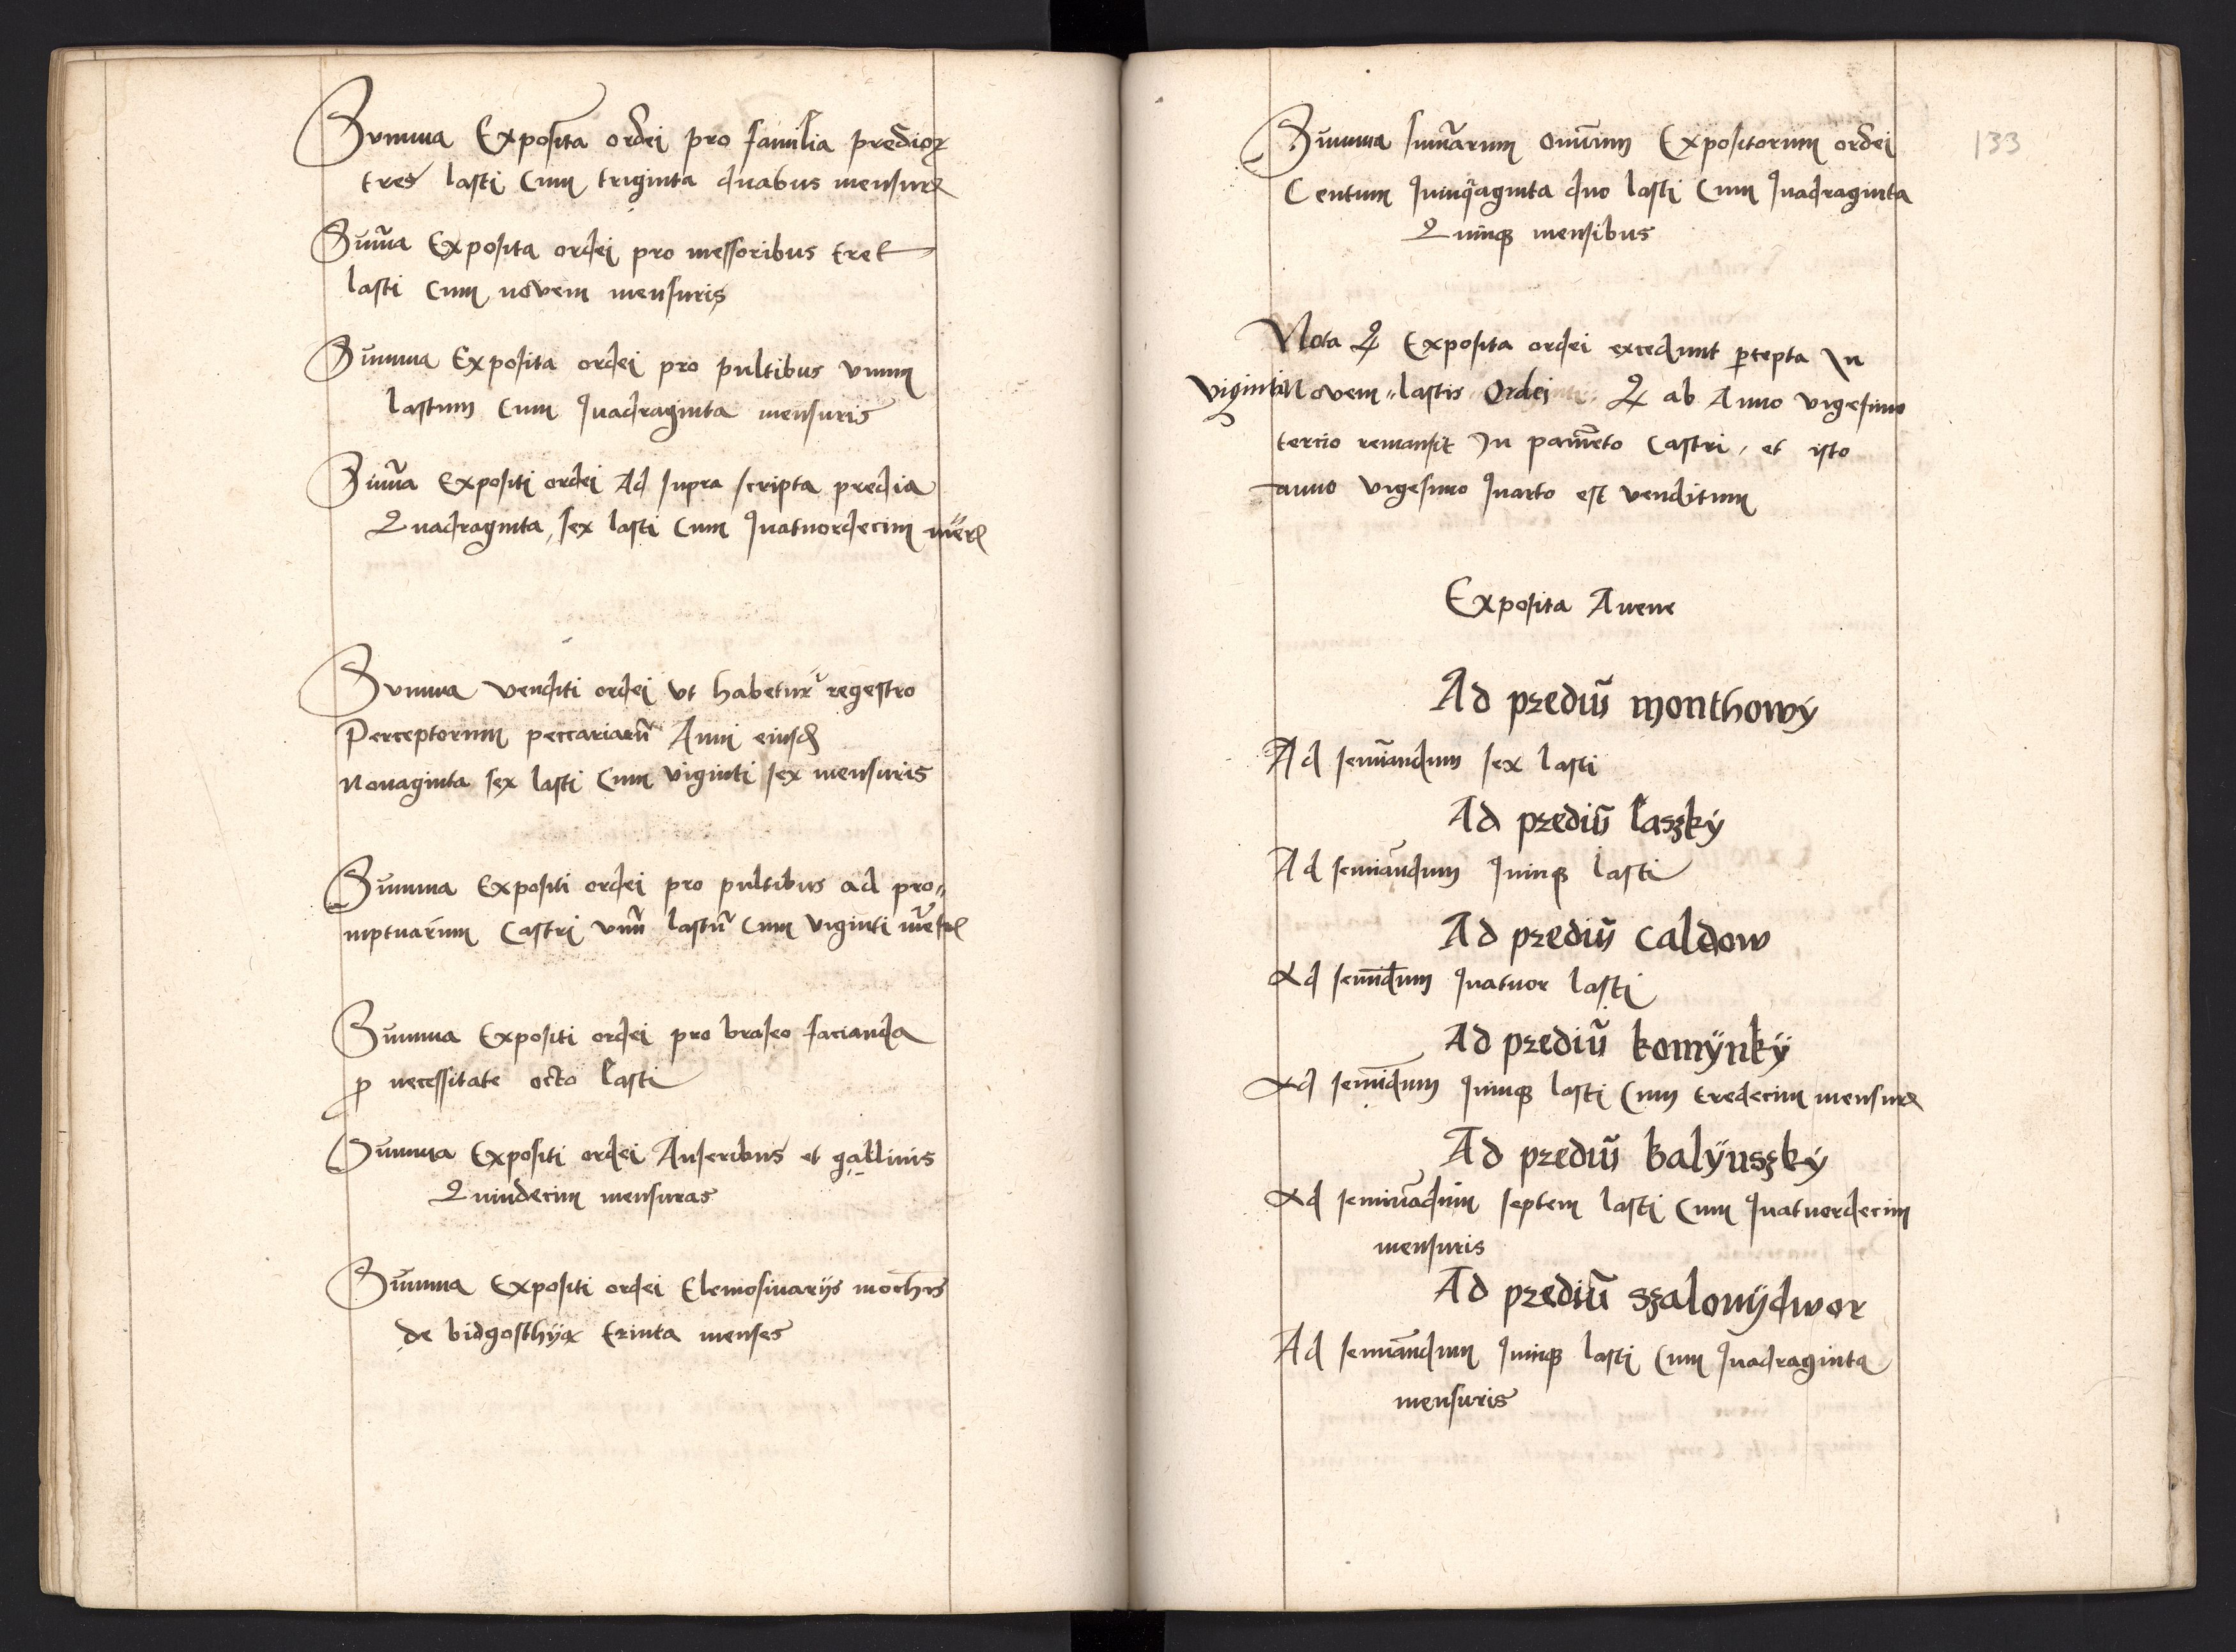 Summa Exposita ordei pro familia predioꝝ
tres lasti Cum triginta duabus mensurꝭ
Sum̃a Exposita ordei pro messoribus tres
lasti Cum novem mensuris
Summa Exposita ordei pro pultibus vnum
lastum Cum quadraginta mensuris
Sum̃a Expositi ordei Ad supra scripta predia
Quadraginta sex lasti Cum quatuordecim
Summa venditi ordei vt habetur regestro
Perceptorum peccariarũ Anni eiusd
Nonaginta sex lasti Cum viginti sex mensuris
Summa Expositi ordei pro pultibus ad pro„
mptuarium Castri vnũ lastũ Cum viginti
Summa Expositi ordei pro braseo facianda
ꝓ necessitate octo lasti
Summa Expositi ordei Anseribus et gallinis
Quindecim mensuras
Summa Expositi ordei Elemosinarijs
de bidgosthya trinta menses
133
Summa sum̃arum omnium Expositorum ordei
Centum quinquaginta duo lasti Cum quadraginta
Quinqꝫ mensibus
Nota Ꝙ Exposita ordei excedunt ꝑcepta In
viginti Novem lastis Ordei Ꝙ ab Anno vigesimo
tercio remansit In pauim̃eto Castri, et isto
anno vigesimo quarto est venditum
Exposita Auene
Ad prediũ monthowy
Ad semĩandum sex lasti
Ad prediũ laszky
Ad seminãdum quinqꝫ lasti
Ad prediũ caldow
Ad semĩdum quatuor lasti
Ad prediũ komÿnkÿ
Ad semĩdum quinqꝫ lasti Cum tredecim mensurꝭ
Ad prediũ balÿnszky
Ad seminãdum septem lasti Cum quatuordecim
mensuris
Ad prediũ szalonÿdwor
Ad semĩandum quinqꝫ lasti Cum quadraginta
mensuris